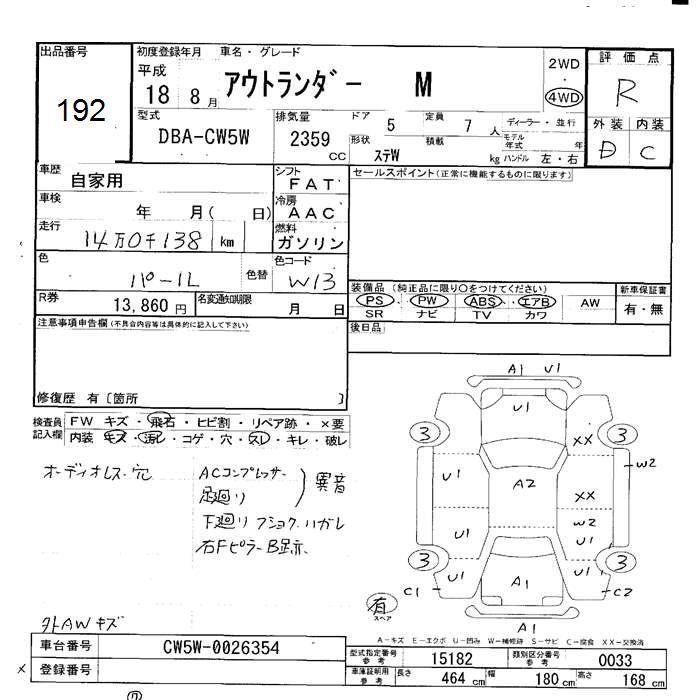 出品番号
192
初度登録年月 車名・グレード
平成
18 8月
アウトランダー M
2WD
4WD
評価点
R
型式
DBA-CW5W
排気量
2359
CC
ドア 5
定員 7 人
形状 ステW
積載 kg
ディーラー・並行
モデル年式 年
ハンドル 左・右
外装 内装
D C
車歴
自家用
シフト
FAT
セールスポイント(正常に機能するものに限ります)
車検
年 月( 日)
冷房
AAC
走行
14万0千138 km
燃料
ガソリン
色
パール
色替
色コード
W13
R券
13,860円
名変通知期限
月 日
装備品 (純正品に限り○をつけてください)
PS PW ABS エアB AW
SR ナビ TV カワ
新車保証書
有・無
注意事項申告欄(不具合内容等は具体的に記入して下さい)
後日品
修復歴 有〔箇所 〕
検査員記入欄
FW キズ・飛石・ヒビ割・リペア跡・×要
内装 キズ・汚レ・コゲ・穴・スレ・キレ・破レ
オーディオレス・穴
ACコンプレッサー
足廻り
異音
下廻り フショク・ハガレ
右Fピラー B跡
外AWキズ
A1 U1
U1
3 3
XX
W2
U1
A2
XX
W2
U1
U1
3 3
U1
U1
C1
A1
C2
A1
有
スペア
A-キズ E-エクボ U-凹み W-補修跡 S-サビ C-腐食 XX-交換済
車台番号
CW5W-0026354
登録番号
型式指定番号
参考
15182
類別区分番号
参考
0033
車庫証明用
参考
長さ 464 cm
幅 180 cm
高さ 168 cm